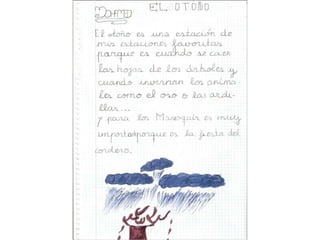 Mohamed EL OTOÑO
El otoño es una estación de
mis estaciones favoritas
porque es cuando se caen
las hojas de los árboles y
cuando invernan los anima-
les como el oso o las ardi-
llas...
y para los Maroquís es muy
importatporque es la fiesta del
cordero.